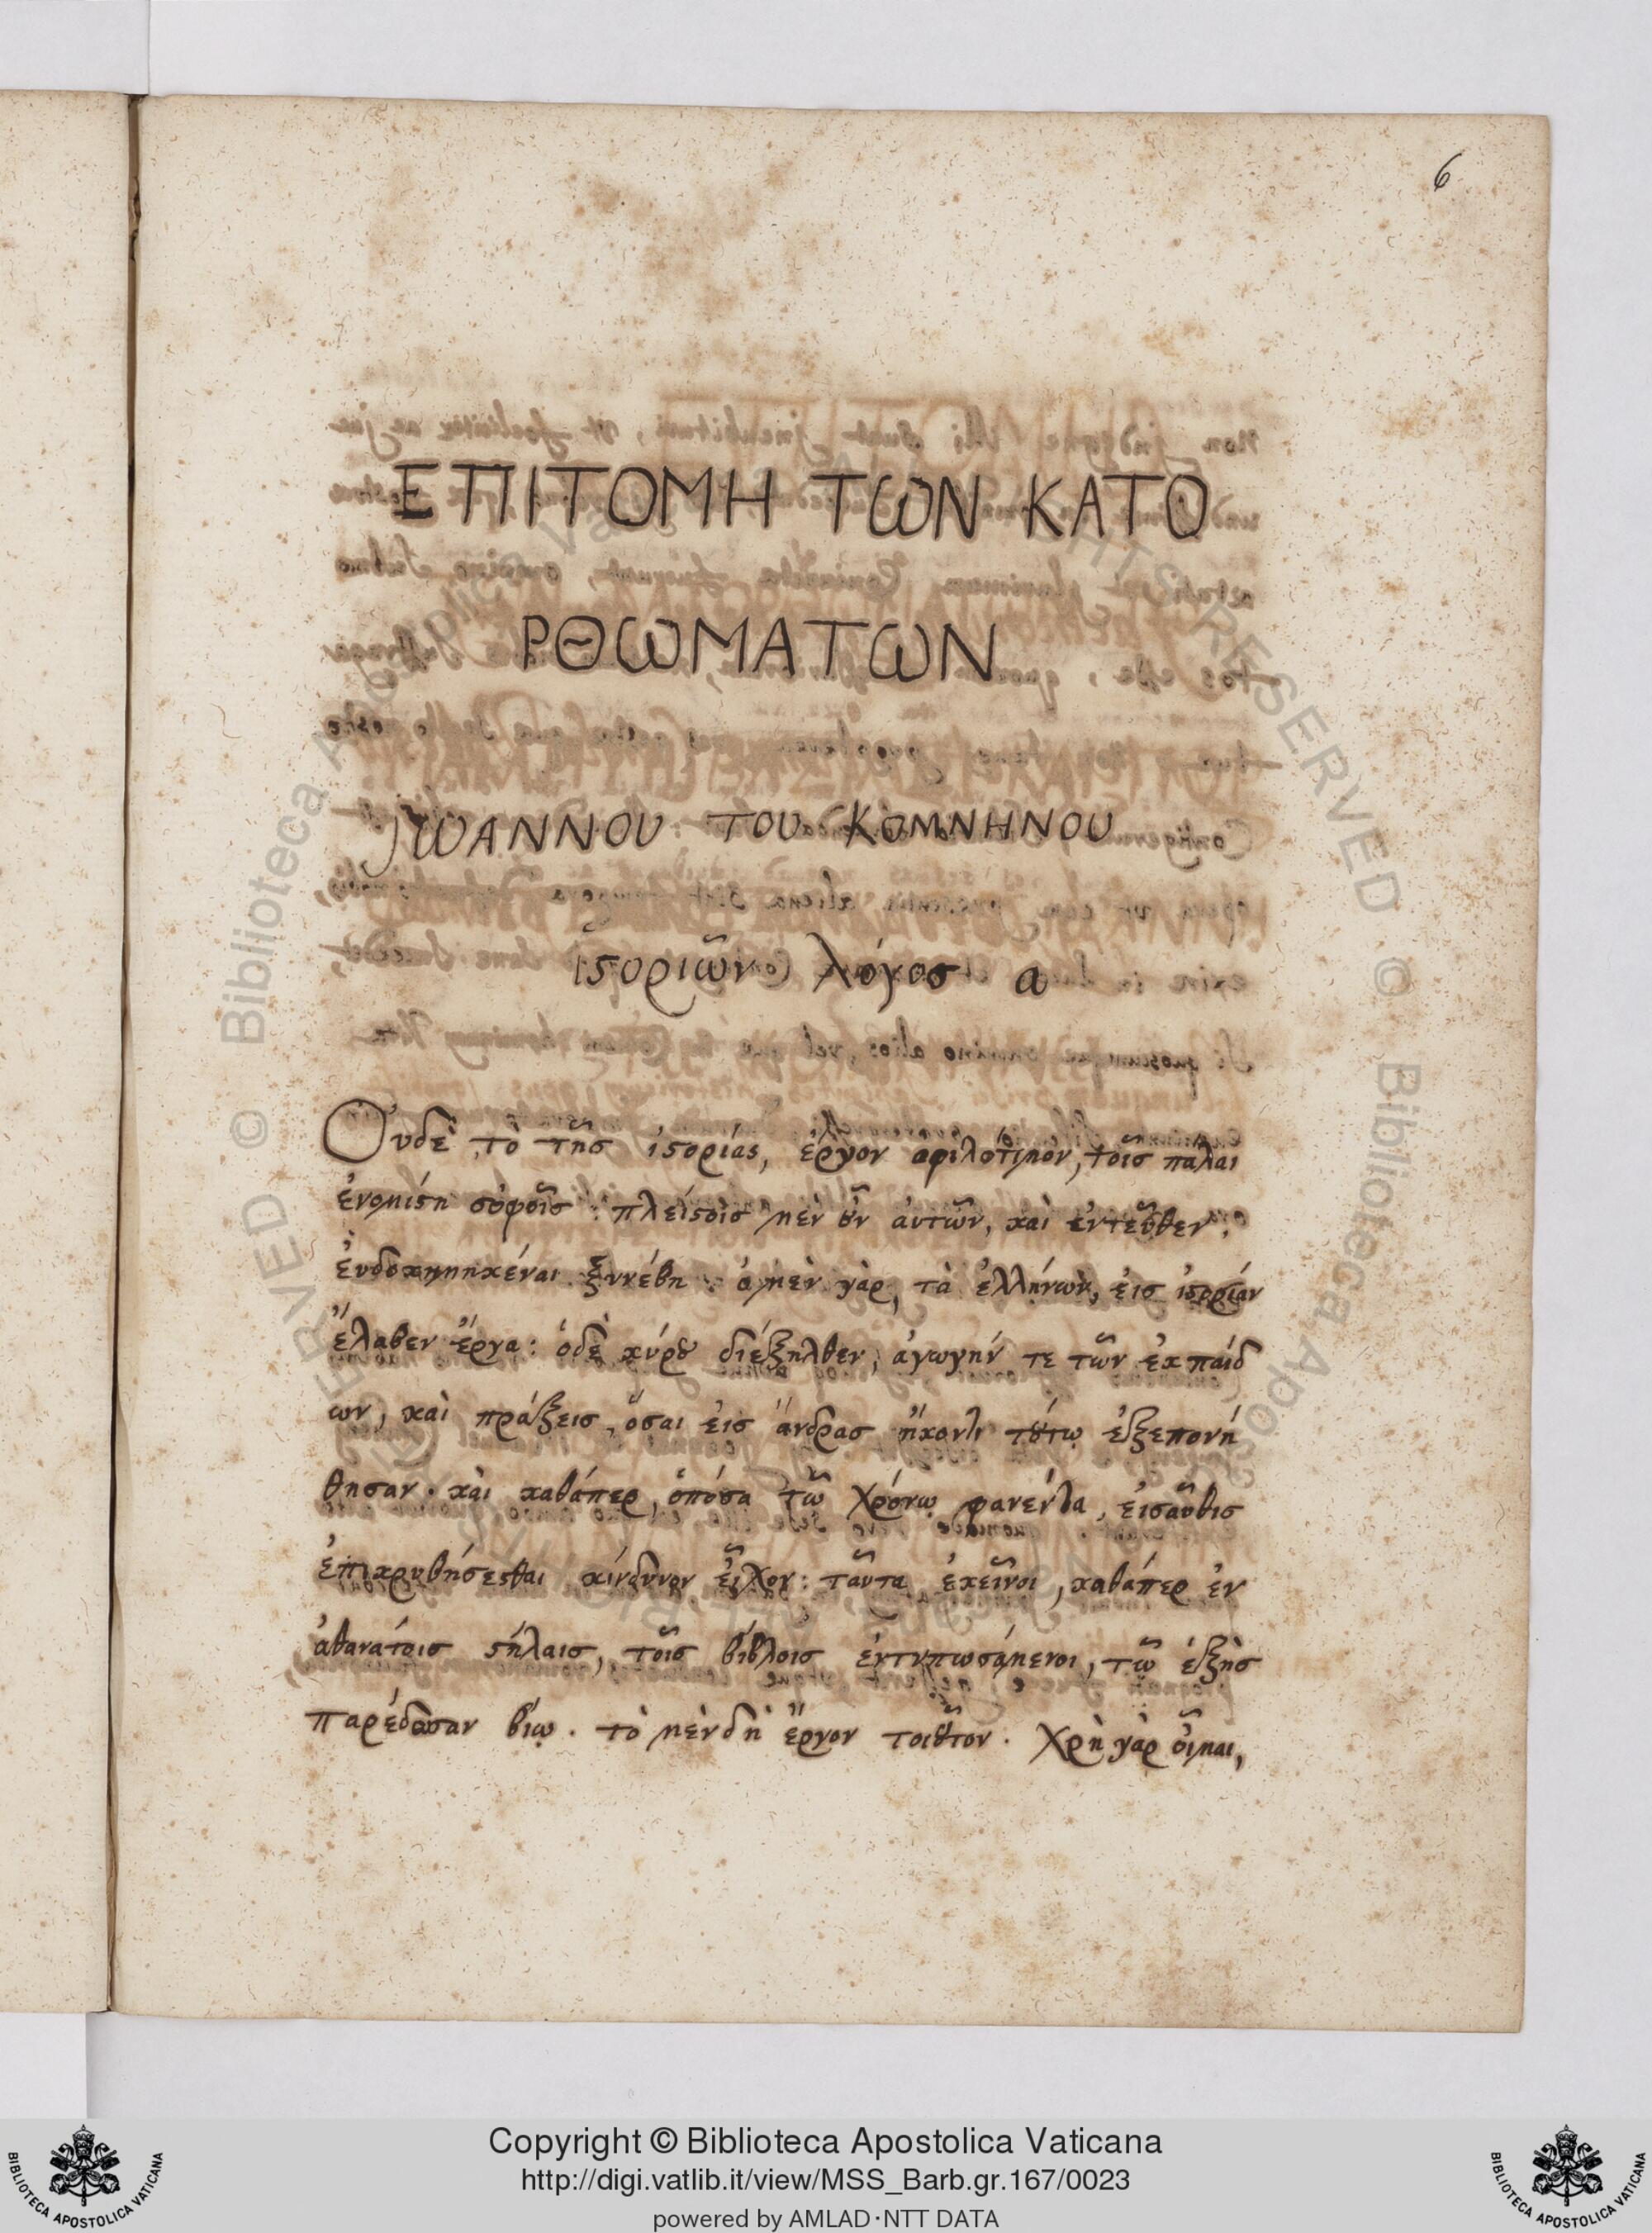 6
ΕΠΙΤΟΜΗ ΤΩΝ ΚΑΤΟ
ΡΘΩΜΑΤΩΝ
ΙΩΑΝΝΟΥ ΤΟΥ ΚΟΜΝΗΝΟΥ
ἱϛοριῶν λόγος α
Ὀυδὲ τὸ τῆς ἱϛορίας, ἔργον ἀφιλότιμον, τοῖς πάλαι
ἐνομίϛη σοφοῖς : πλείϛοις μὲν ȣ̓͂ν ἀυτῶν, καὶ ἐντεῦθεν,
ἐυδοκιμηκέναι ξυνέβη : ὁ μὲν γὰρ, τὰ ἑλλήνων, ἐις ἱϛορίαν
ἔλαβεν ἔργα : ὁδὲ κύρȣ διέξηλθεν, ἀγωγήν τε τῶν ἐκ παίδ
ων, καὶ πράξεις, ὅσαι ἐις ἄνδρας ἥκοντι τȣ́τῳ ἐξεπονή
θησαν . κὰι καθάπερ, ὁπόσα τῷ χρόνῳ φανέντα, ἐισαῦθις
ἐπικρυβήσεϛθαι κίνδυνον εἶχον : ταῦτα ἐκεῖνοι, καθάπερ ἐν
ἀθανάτοις ϛήλαις, τοῖς βίβλοις ἐντυπωσάμενοι, τῷ ἑξὴς
παρέδοσαν βίῳ . τὸ μὲν δὴ ἔργον τοιȣ͂τον . Χρὴ γὰρ οἶμαι,
Copyright © Biblioteca Apostolica Vaticana
http://digi.vatlib.it/view/MSS_Barb.gr.167/0023
powered by AMLAD·NTT DATA
BIBLIOTECA APOSTOLICA VATICANA
BIBLIOTECA APOSTOLICA VATICANA